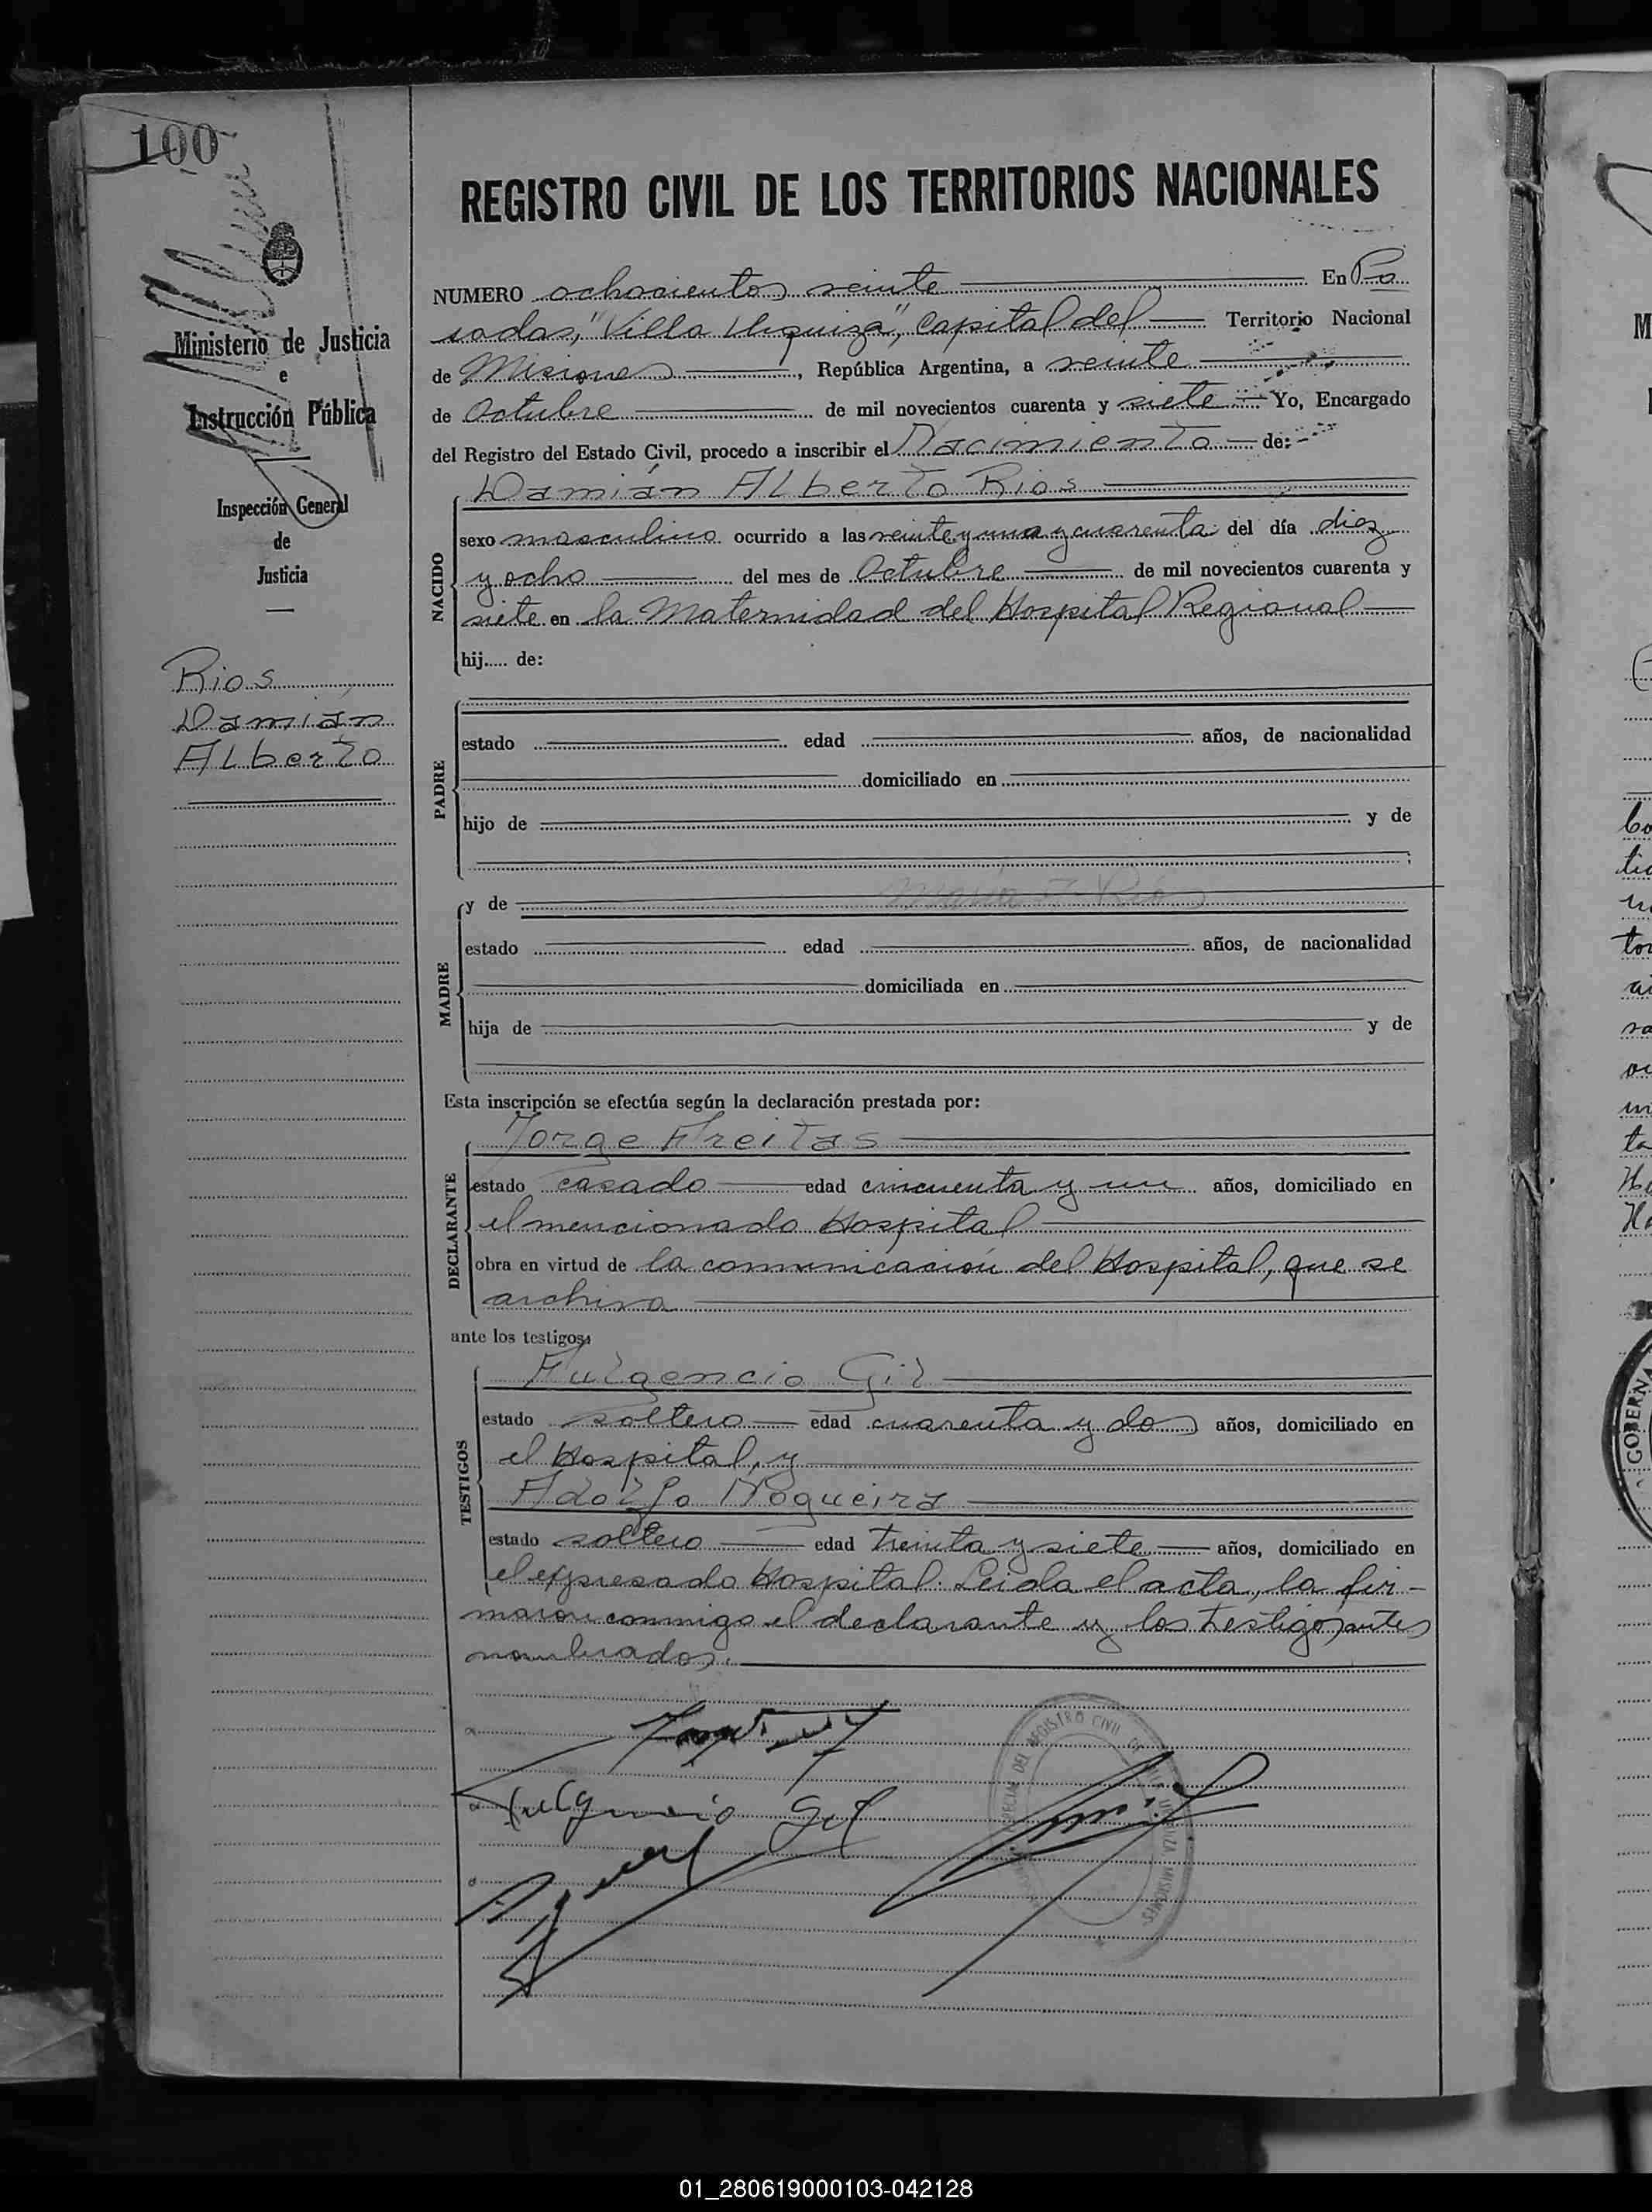 100
REGISTRO CIVIL DE LOS TERRITORIOS NACIONALES
Ministerio de Justicia
e
Instrucción Pública
Inspección General
de
Justicia
Rios
Damián
Alberto
NUMERO ochocientos veinte En Po
sadas, "Villa Urquiza", Capital del Territorio Nacional
de Misiones, República Argentina, a veinte
de Octubre de mil novecientos cuarenta y siete Yo, Encargado
del Registro del Estado Civil, procedo a inscribir el Nacimiento de:
NACIDO
Damián Alberto Rios
sexo masculino ocurrido a las veinte y una y cuarenta del día diez
y ocho del mes de Octubre de mil novecientos cuarenta y
siete en la Maternidad del Hospital Regional
hij..... de:
PADRE
estado edad años, de nacionalidad
domiciliado en
hijo de y de
MADRE
y de
estado edad años, de nacionalidad
domiciliada en
hija de y de
Esta inscripción se efectúa según la declaración prestada por:
DECLARANTE
Jorge Freitas
estado casado edad cincuenta y un años, domiciliado en
el mencionado Hospital
obra en virtud de la comunicación del Hospital, que se
archiva
ante los testigos
TESTIGOS
Fulgencio Gil
estado soltero edad cuarenta y dos años, domiciliado en
el Hospital, y
Adolfo Nogueira
estado soltero edad treinta y siete años, domiciliado en
el expresado Hospital. Leida el acta, la fir-
maron conmigo el declarante y los testigos antes
nombrados.
Fulgencio Gil
REGISTRO CIVIL
MISIONES
GOBERNA
01_280619000103-042128